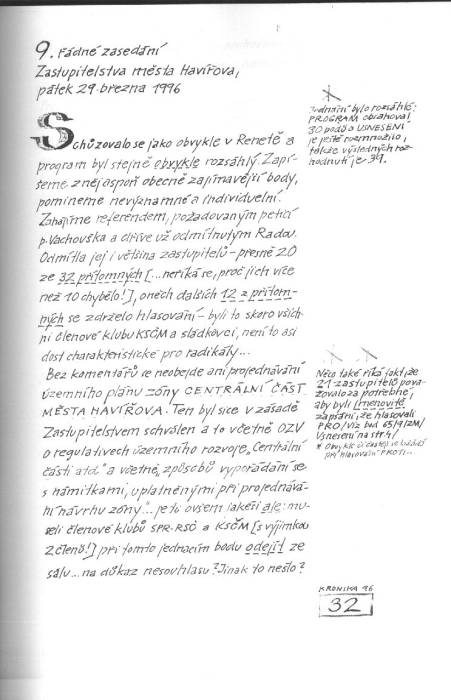 9. řádné zasedání
Zastupitelstva města Havířova,
pátek 29. března 1996
Schůzovalo se jako obvykle v Renetě a
program byl stejně obvykle rozsáhlý. Zapí-
šeme z něj aspoň obecně zajímavější body,
pomineme nevýznamné a individuelní.
Zahájíme referendem, požadovaným peticí
p. Vachouška a dříve už odmítnutým Radou.
Odmítla jej i většina zastupitelů – přesně 20
ze 32 přítomných [...neříká se, proč jich více
než 10 chybělo!], oněch dalších 12 z přítom-
ných se zdrželo hlasování – byli to skoro všich-
ni členové klubu KSČM a sládkovci, není to asi
dost charakteristické pro radikály...
Bez komentářů se neobejde ani projednávání
územního plánu zóny CENTRÁLNÍ ČÁST
MĚSTA HAVÍŘOVA. Ten byl sice v zásadě
Zastupitelstvem schválen a to včetně OZV
o regulativech územního rozvoje „Centrální
části atd." a včetně „způsobů vypořádání se
s námitkami, uplatněnými při projednává-
ní návrhu zóny"... je tu ovšem jakési ale: mu-
seli členové klubů SPR-RSČ a KSČM [s výjimkou
2 členů!] při tomto jednacím bodu odejít ze
sálu... na důkaz nesouhlasu? Jinak to nešlo?
Jednání bylo rozsáhlé:
PROGRAM obsahoval
30 bodů a USNESENÍ
je ještě rozmnožilo,
takže výsledných roz-
hodnutí je 39.
Něco také říká fakt, že
21 zastupitelů pova-
žovalo za potřebné,
aby byli jmenovitě
zapsáni, že hlasovali
PRO /viz bod 65/9/ZM/
Usnesení na str. 4/
* Obvykle či častěji se žádá
při hlasování PROTI...
KRONIKA 96
32